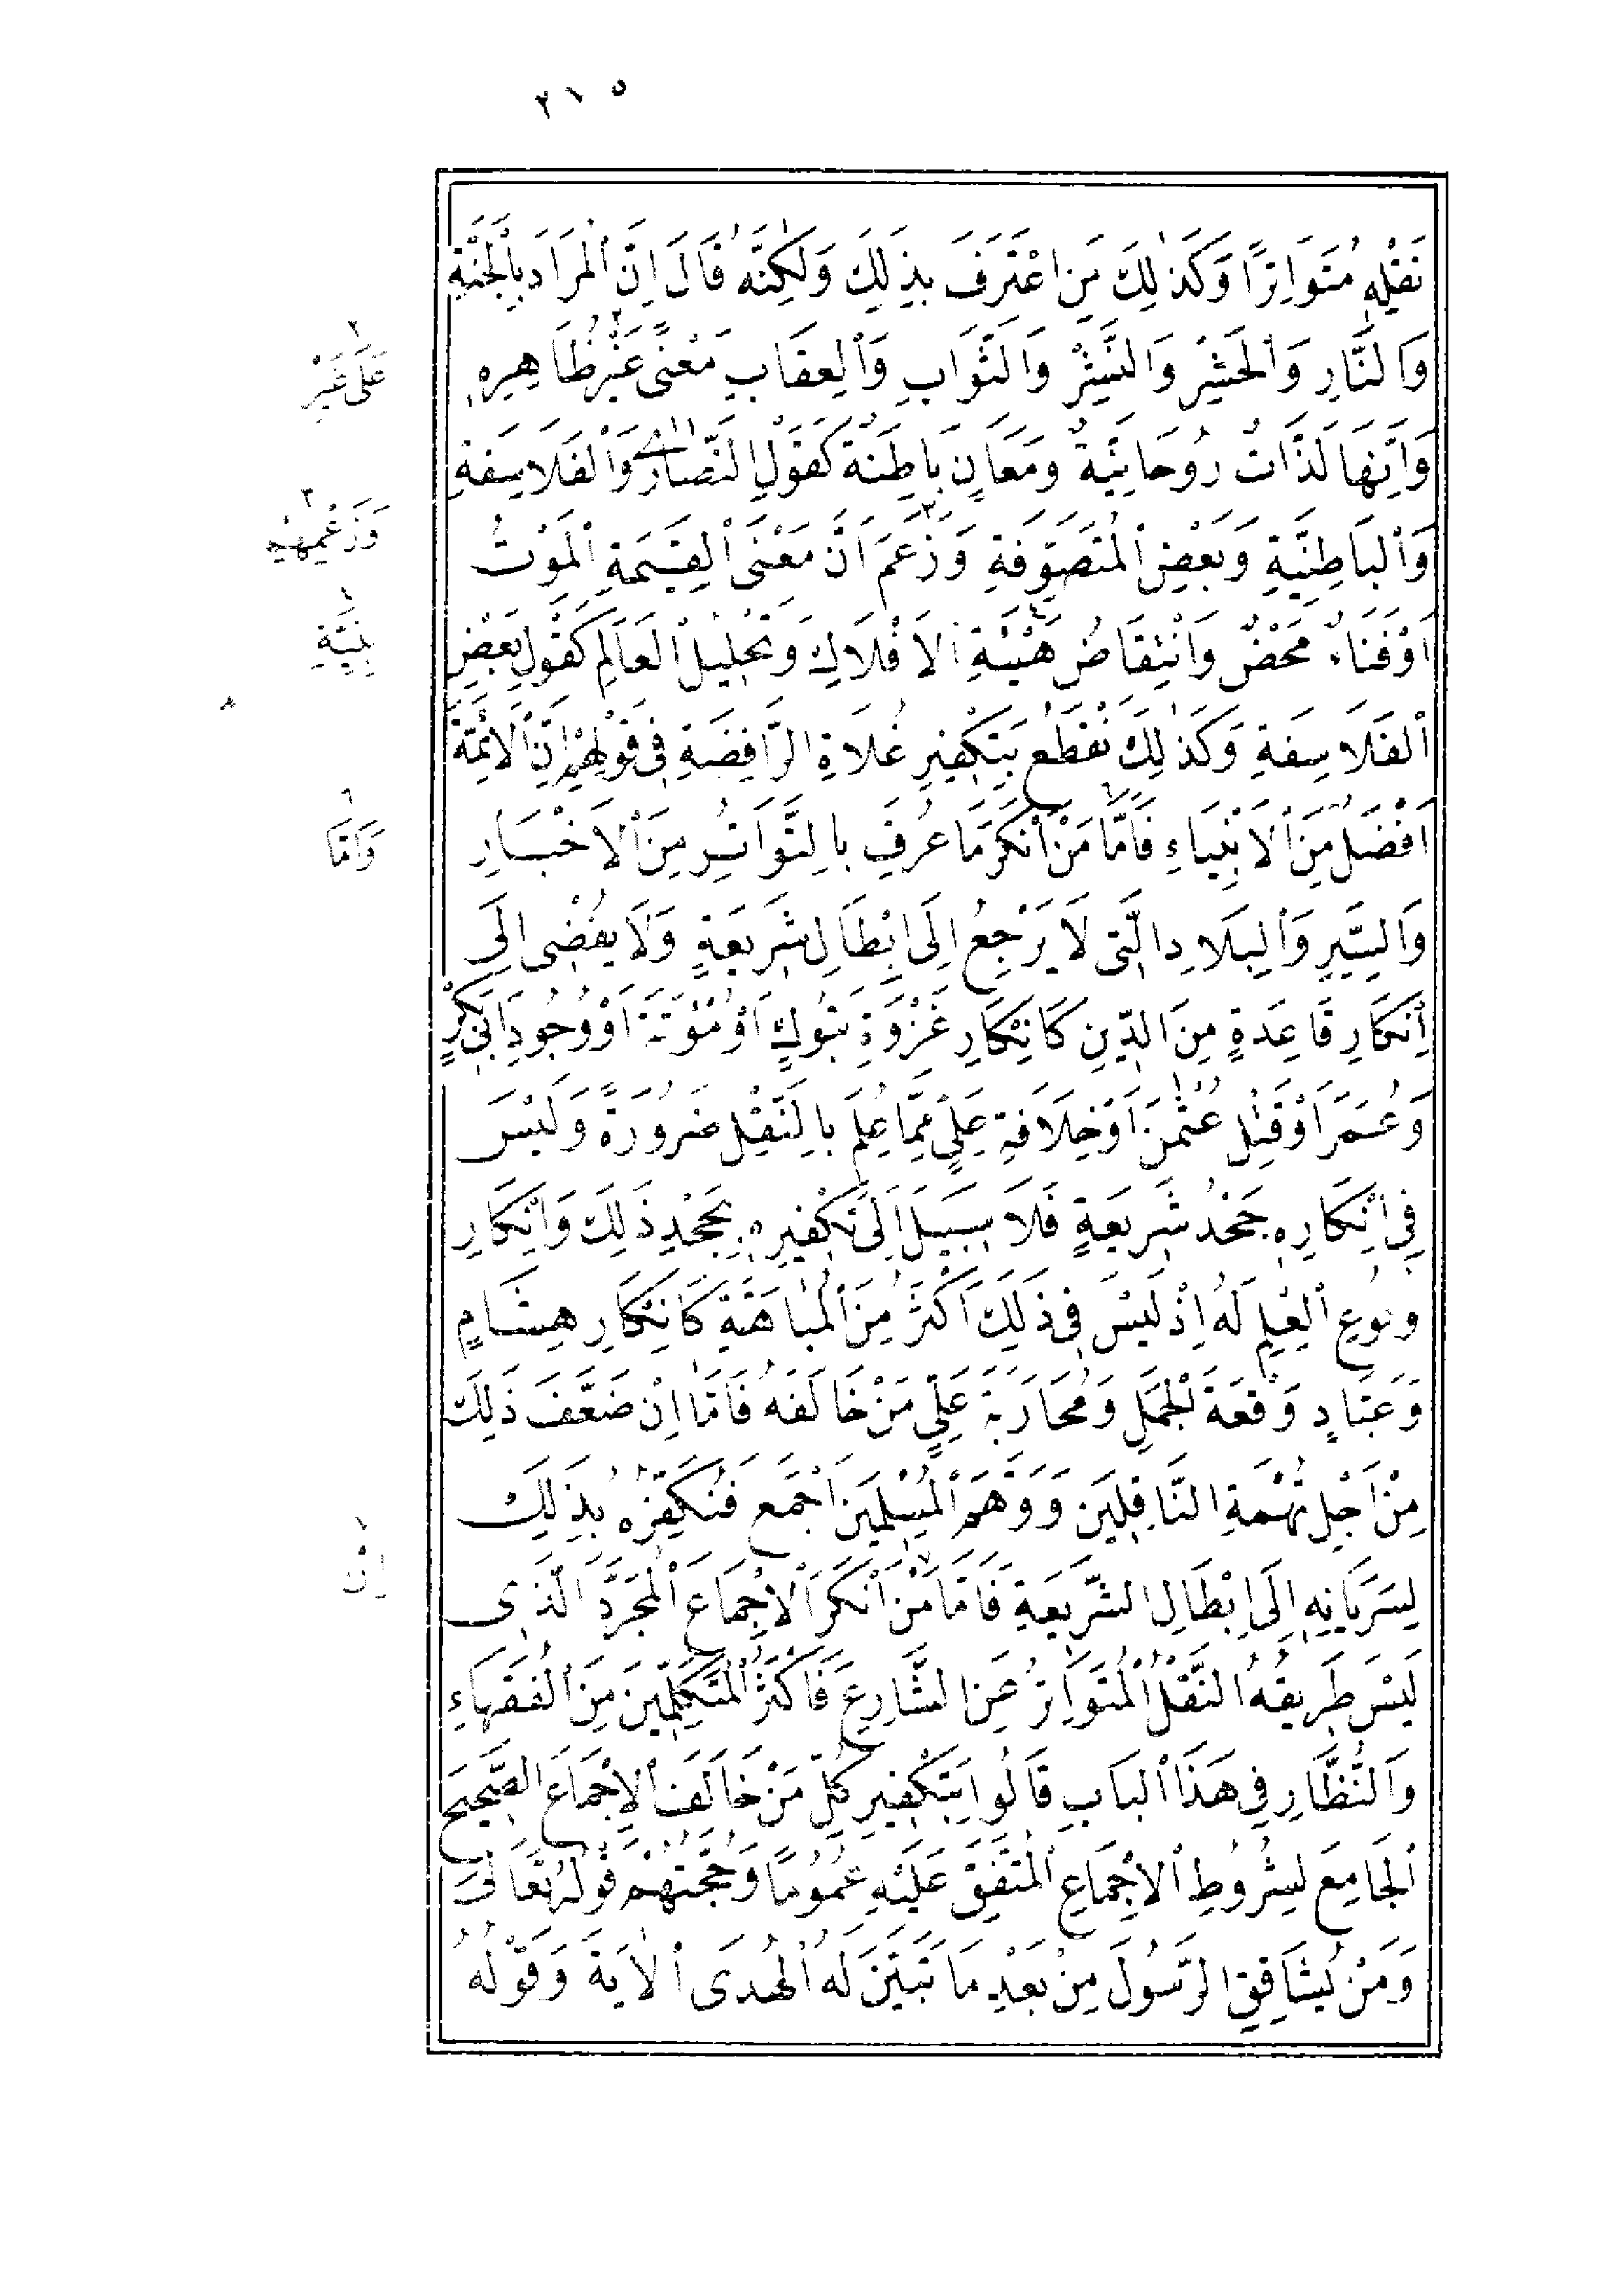 ٢١٥
نَقْلِهِ مُتَوَاتِرًا وَكَذٰلِكَ مَنِ اعْتَرَفَ بِذٰلِكَ وَلٰكِنَّهُ قَالَ اِنَّ الْمُرَادَ بِالْجَنَّةِ
وَالنَّارِ وَالْحَشْرِ وَالنَّشْرِ وَالثَّوَابِ وَالْعِقَابِ مَعْنًى غَيْرُ ظَاهِرِهِ
عَلَى غَيْرِ
وَاَنَّهَا لَذَّاتٌ رُوحَانِيَّةٌ وَمَعَانٍ بَاطِنَةٌ كَقَوْلِ النَّصَارٰى وَالْفَلَاسِفَةِ
وَالْبَاطِنِيَّةِ وَبَعْضِ الْمُتَصَوِّفَةِ وَزَعَمَ اَنَّ مَعْنَى الْقِيٰمَةِ الْمَوْتُ
وَزَعْمِهِمْ
اَوْ فَنَاءٌ مَحْضٌ وَانْتِقَاضُ هَيْئَةِ الْاَفْلَاكِ وَتَحْلِيلُ الْعَالَمِ كَقَوْلِ بَعْضِ
بِنِيَّةِ
الْفَلَاسِفَةِ وَكَذٰلِكَ نَقْطَعُ بِتَكْفِيرِ غُلَاةِ الرَّافِضَةِ فِى قَوْلِهِمْ اِنَّ الْاَئِمَّةَ
اَفْضَلُ مِنَ الْاَنْبِيَاءِ فَاَمَّا مَنْ اَنْكَرَ مَا عُرِفَ بِالتَّوَاتُرِ مِنَ الْاَخْبَارِ
وَاَمَّا
وَالسِّيَرِ وَالْبِلَادِ الَّتِى لَا يَرْجِعُ اِلَى اِبْطَالِ شَرِيعَةٍ وَلَا يُفْضِى اِلَى
اِنْكَارِ قَاعِدَةٍ مِنَ الدِّينِ كَاِنْكَارِ غَزْوَةِ تَبُوكٍ اَوْ مُؤْتَةَ اَوْ وُجُودِ اَبِى بَكْرٍ
وَعُمَرَ اَوْ قَتْلِ عُثْمٰنَ اَوْ خِلَافَةِ عَلِيٍّ مِمَّا عُلِمَ بِالنَّقْلِ ضَرُورَةً وَلَيْسَ
فِى اِنْكَارِهِ جَحْدُ شَرِيعَةٍ فَلَا سَبِيلَ اِلَى تَكْفِيرِهِ بِجَحْدِ ذَلِكَ وَاِنْكَارِ
وُقُوعِ الْعِلْمِ لَهُ اِذْ لَيْسَ فِى ذَلِكَ اَكْثَرُ مِنَ الْمُبَاهَتَةِ كَاِنْكَارِ هِشَامٍ
وَعَبَّادٍ وَقْعَةَ الْجَمَلِ وَمُحَارَبَةَ عَلِيٍّ مَنْ خَالَفَهُ فَاَمَّا اِنْ ضَعَّفَ ذَلِكَ
مِنْ اَجْلِ تُهْمَةِ النَّاقِلِينَ وَوَهَّمَ الْمُسْلِمِينَ اَجْمَعَ فَنُكَفِّرُهُ بِذَلِكَ
لِسَرَيَانِهِ اِلَى اِبْطَالِ الشَّرِيعَةِ فَاَمَّا مَنْ اَنْكَرَ الْاِجْمَاعَ الْمُجَرَّدَ الَّذِى
اِنْ
لَيْسَ طَرِيقُهُ النَّقْلُ الْمُتَوَاتِرُ عَنِ الشَّارِعِ فَاَكْثَرُ الْمُتَكَلِّمِينَ مِنَ الْفُقَهَاءِ
وَالنُّظَّارِ فِى هَذَا الْبَابِ قَالُوا بِتَكْفِيرِ كُلِّ مَنْ خَالَفَ الْاِجْمَاعَ الصَّحِيحَ
الْجَامِعَ لِشُرُوطِ الْاِجْمَاعِ الْمُتَّفَقَ عَلَيْهِ عُمُومًا وَحُجَّتُهُمْ قَوْلُهُ تَعَالَى
وَمَنْ يُشَاقِقِ الرَّسُولَ مِنْ بَعْدِ مَا تَبَيَّنَ لَهُ الْهُدَى الْاٰيَةَ وَقَوْلُهُ